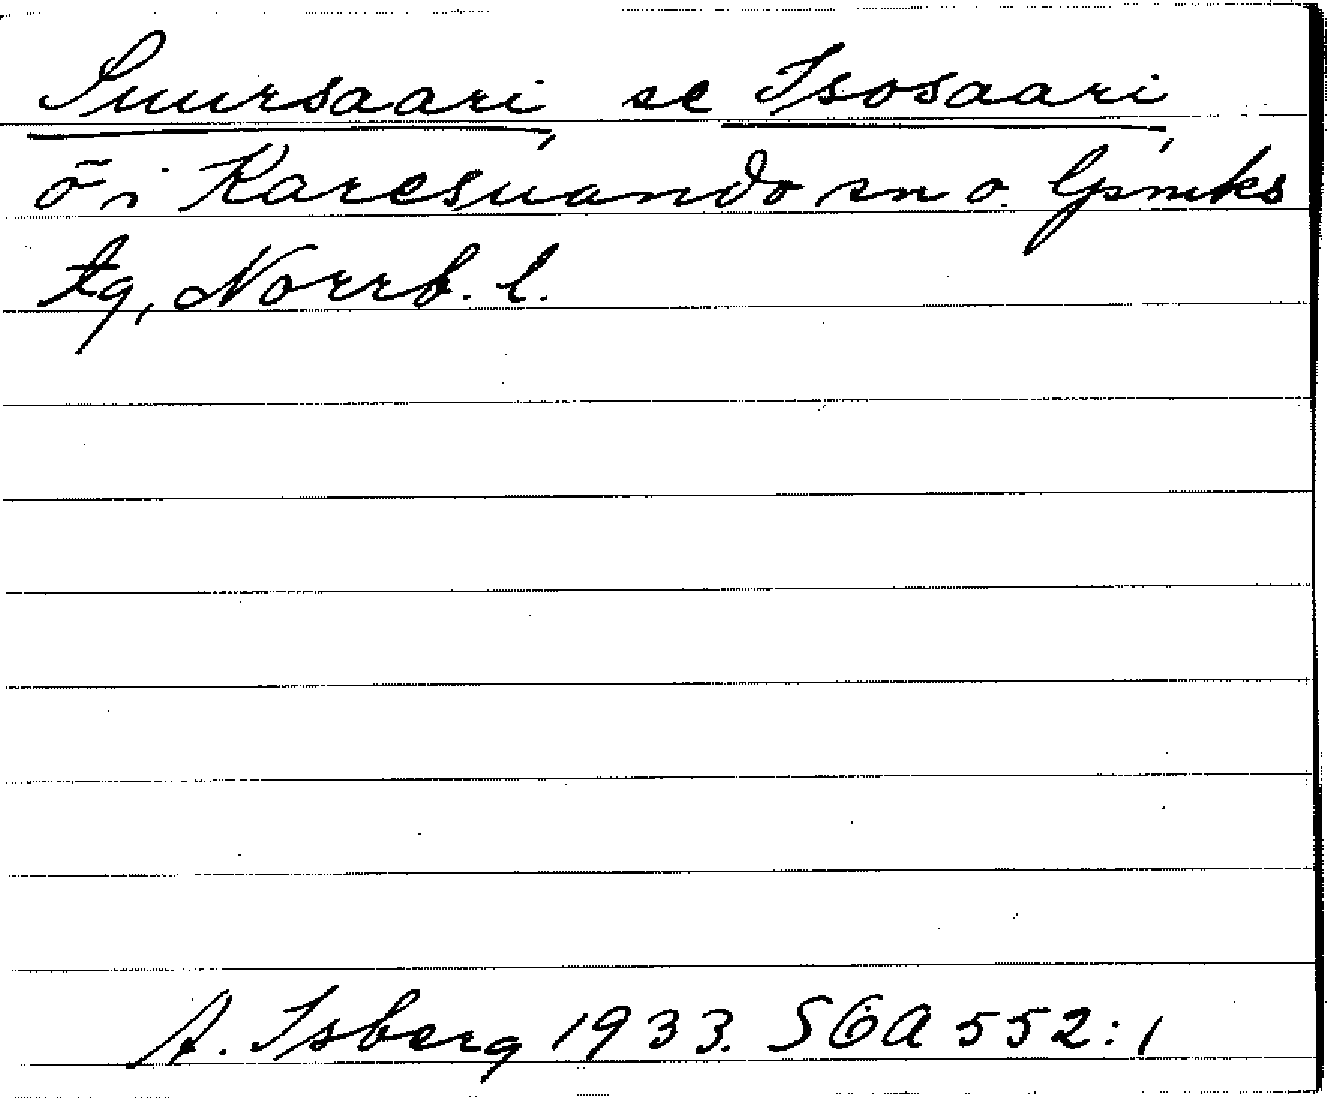 Suursaari, se Isosaari,
ö i Karesuando sn o. lpmks
tg, Norrb. l.
A. Isberg 1933. SOA 552:1